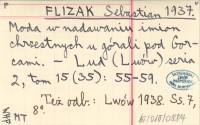 FLIZAK Sebastian 1937.
Moda w nadawaniu imion
chrzestnych u górali pod Gor-
cami. — Lud (Lwów) seria
2, tom 15 (35): 55-59.
Też odb.: Lwów 1938. Ss. 7,
8°.
MT